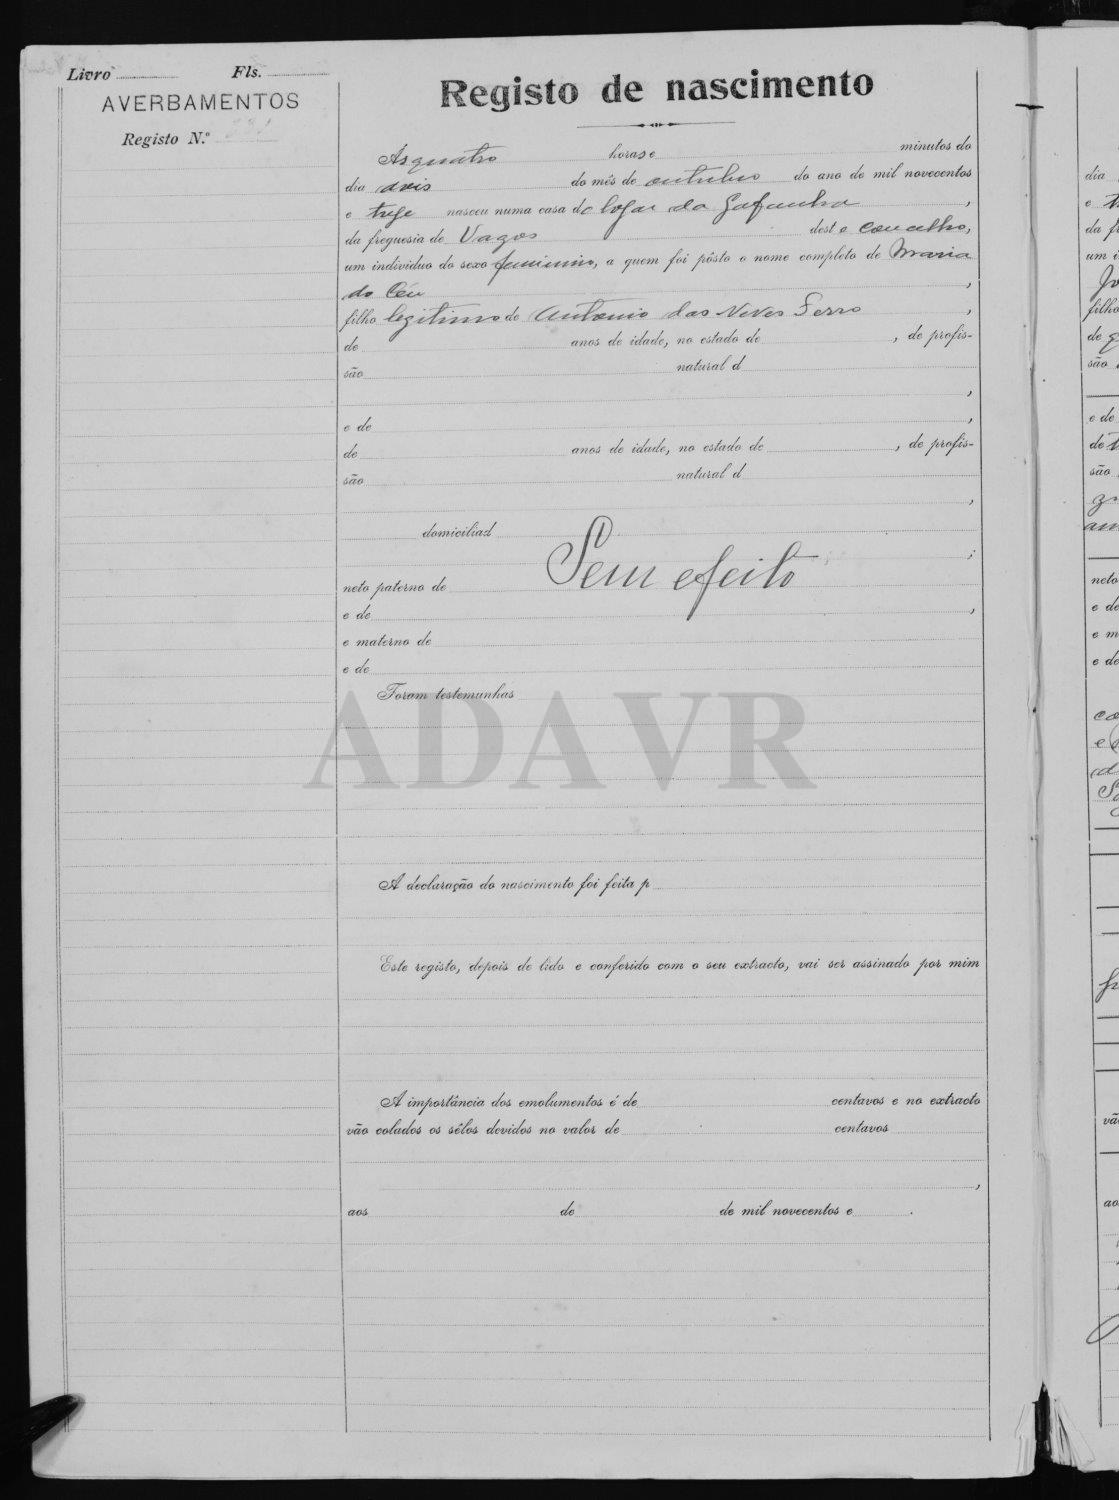 Livro Fls.
AVERBAMENTOS
Registo N.º
Registo de nascimento
As quatro horas e minutos do
dia dois do mês de outubro do ano de mil novecentos
e treze nasceu numa casa do logar da Gafanha,
da freguesia de Vagos deste concelho,
um individuo do sexo feminino, a quem foi pôsto o nome completo de Maria
do Céu,
filho legitimo de Antonio das Neves Ferro,
de anos de idade, no estado de , de profis-
são natural d
,
e de ,
de anos de idade, no estado de , de profis-
são natural d
,
domiciliad
;
Sem efeito
neto paterno de
e de ,
e materno de
e de
Foram testemunhas
ADAVR
A declaração do nascimento foi feita p
Este registo, depois de lido e conferido com o seu extracto, vai ser assinado por mim
A importância dos emolumentos é de centavos e no extracto
vão colados os sêlos devidos no valor de centavos
,
aos de de mil novecentos e .
dia
e
da f
um i
filho
de
são
e de
de
são
neto
e de
e m
e de
vão
ao